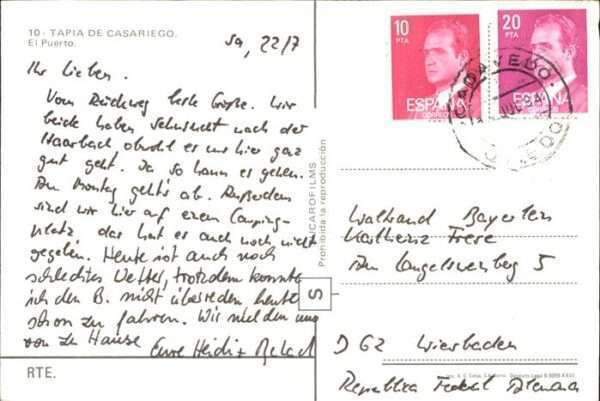 10 - TAPIA DE CASARIEGO.
El Puerto.
Sa, 22/7
Ihr Lieben.
Vom Rückweg beste Grüße. Wir
beide haben Sehnsucht nach der
obwohl es uns hier ganz
gut geht. Ja so kann es gehen.
Am Montag geht's ab. Außerdem
sind wir hier auf einem Camping-
platz das hat es auch noch nicht
gegeben. Heute ist auch noch
schlechtes Wetter, trotzdem konnte
ich den B. nicht überreden heute
schon zu fahren. Wir melden uns
von zu Hause Eure Heidi +
RTE.
10
PTA
ESPAÑA
CORREOS
20
PTA
ESPAÑA
CADAVEDO
Prohibida la reproducción
S
Bayerlein
Frere
5
D 62 Wiesbaden
Republica Federal Alemana